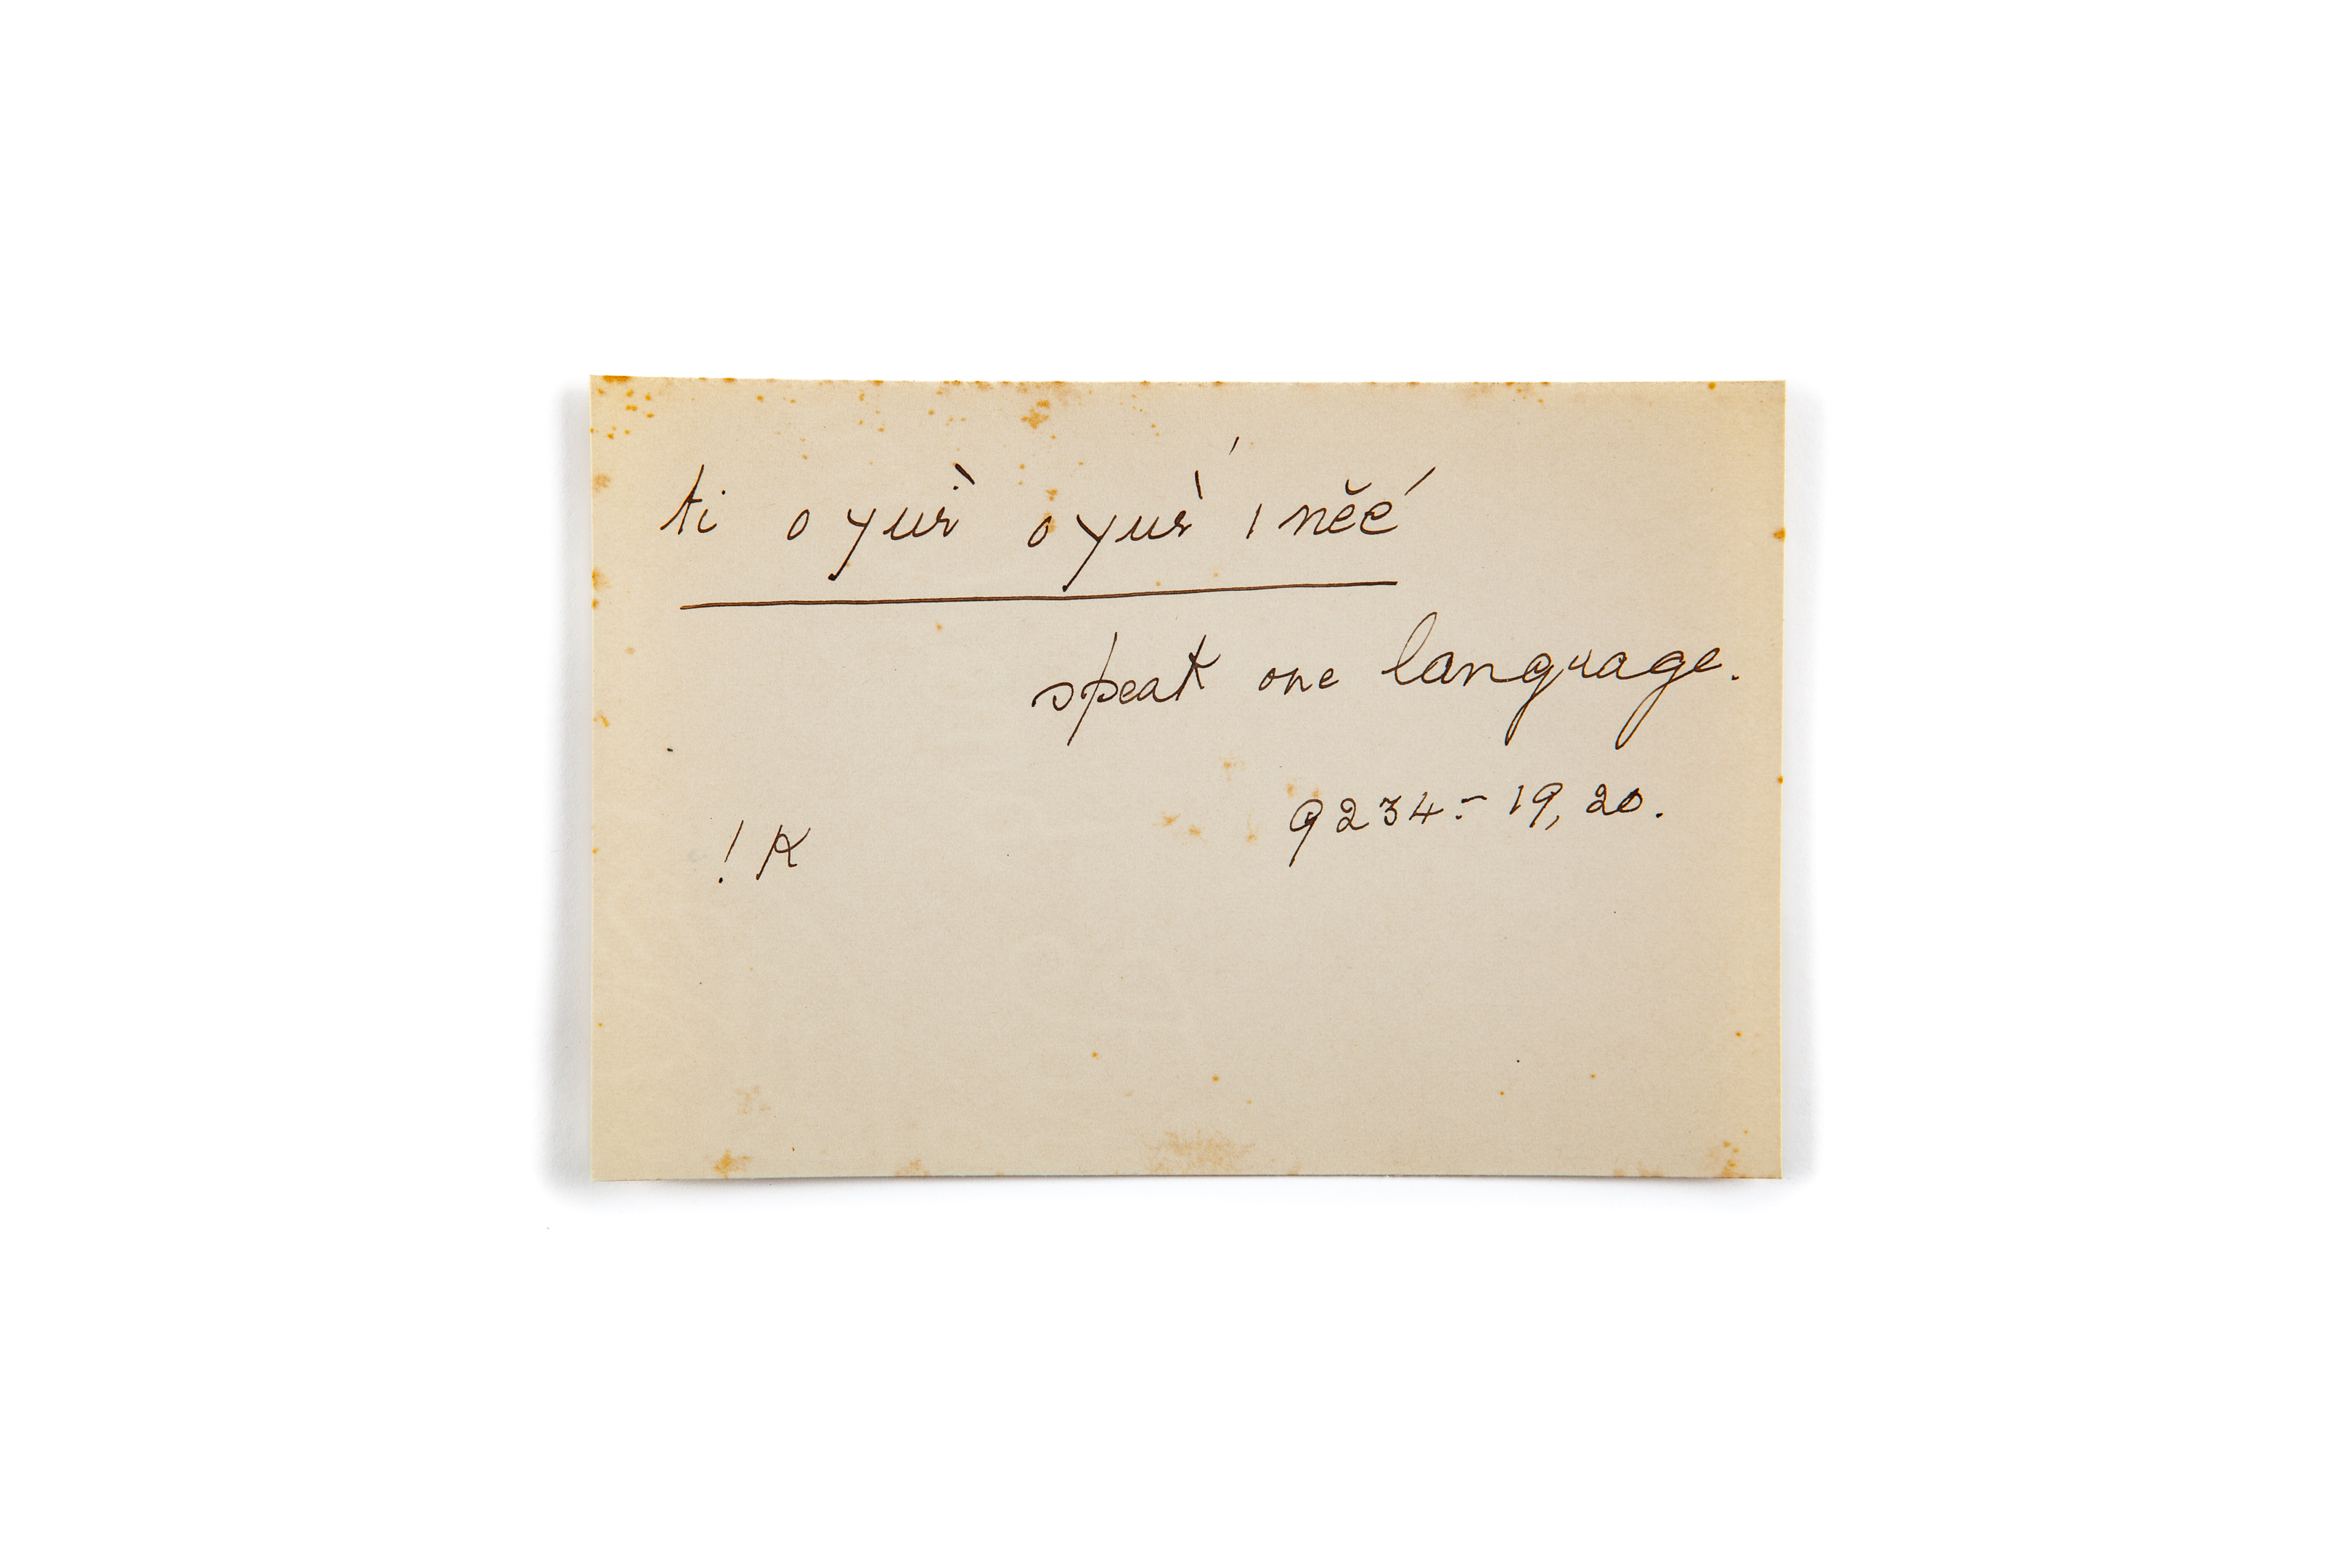 ti o yuı̀ o yuı̀ ı něé
speak one language.
9234.– 19, 20.
! K